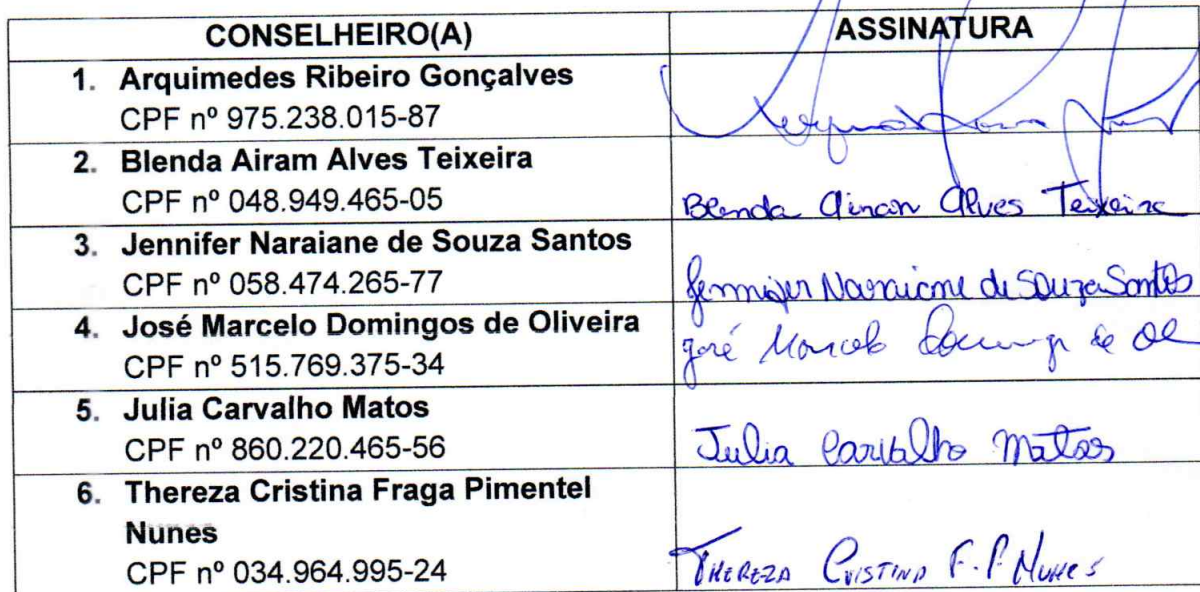 CONSELHEIRO(A) ASSINATURA
1. Arquimedes Ribeiro Gonçalves
CPF nº 975.238.015-87
2. Blenda Airam Alves Teixeira
CPF nº 048.949.465-05 Blenda Airam Alves Teixeira
3. Jennifer Naraiane de Souza Santos
CPF nº 058.474.265-77 Jennifer Naraiane de Souza Santos
4. José Marcelo Domingos de Oliveira José Marcelo de Ol
CPF nº 515.769.375-34
5. Julia Carvalho Matos
CPF nº 860.220.465-56 Julia Carvalho Matos
6. Thereza Cristina Fraga Pimentel
Nunes
CPF nº 034.964.995-24 Thereza Cristina F. P Nunes